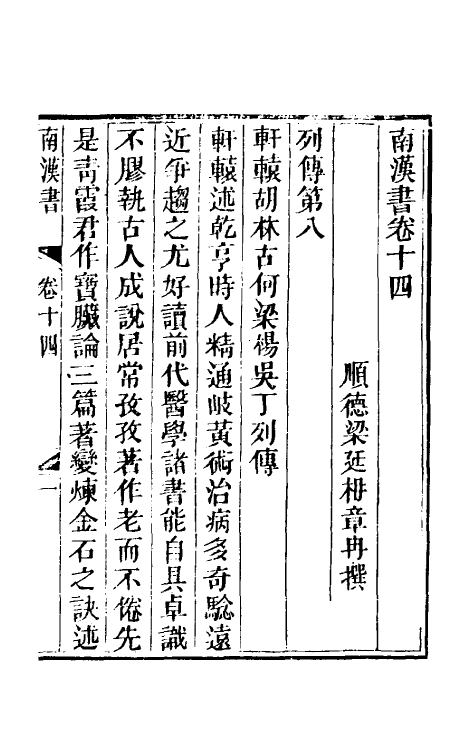 南漢書卷十四
順德梁廷枏章冉撰
列傳第八
軒轅胡林古何梁楊吳丁列傳
軒轅述乾亨時人精通岐黃術治病多奇驗遠
近爭趨之尤好讀前代醫學諸書能自具卓識
不膠執古人成說居常孜孜著作老而不倦先
是靑霞君作寶臟論三篇著變煉金石之訣述
南漢書
卷十四
一